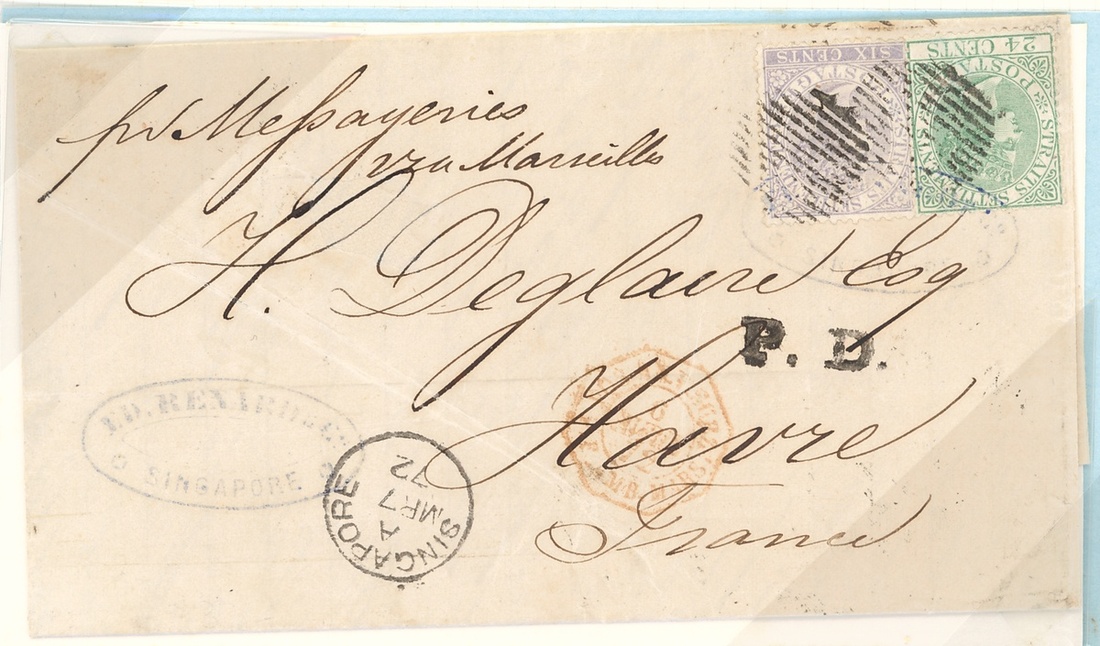 SIX CENTS
POSTAGE
24 CENTS
POSTAGE
STRAITS SETTLEMENTS
pr Messayeries
via Marseilles
H. Deglaire Esq
P. D.
Havre
France
ED. RENARD & Co
SINGAPORE
SINGAPORE
A
MR 7
72